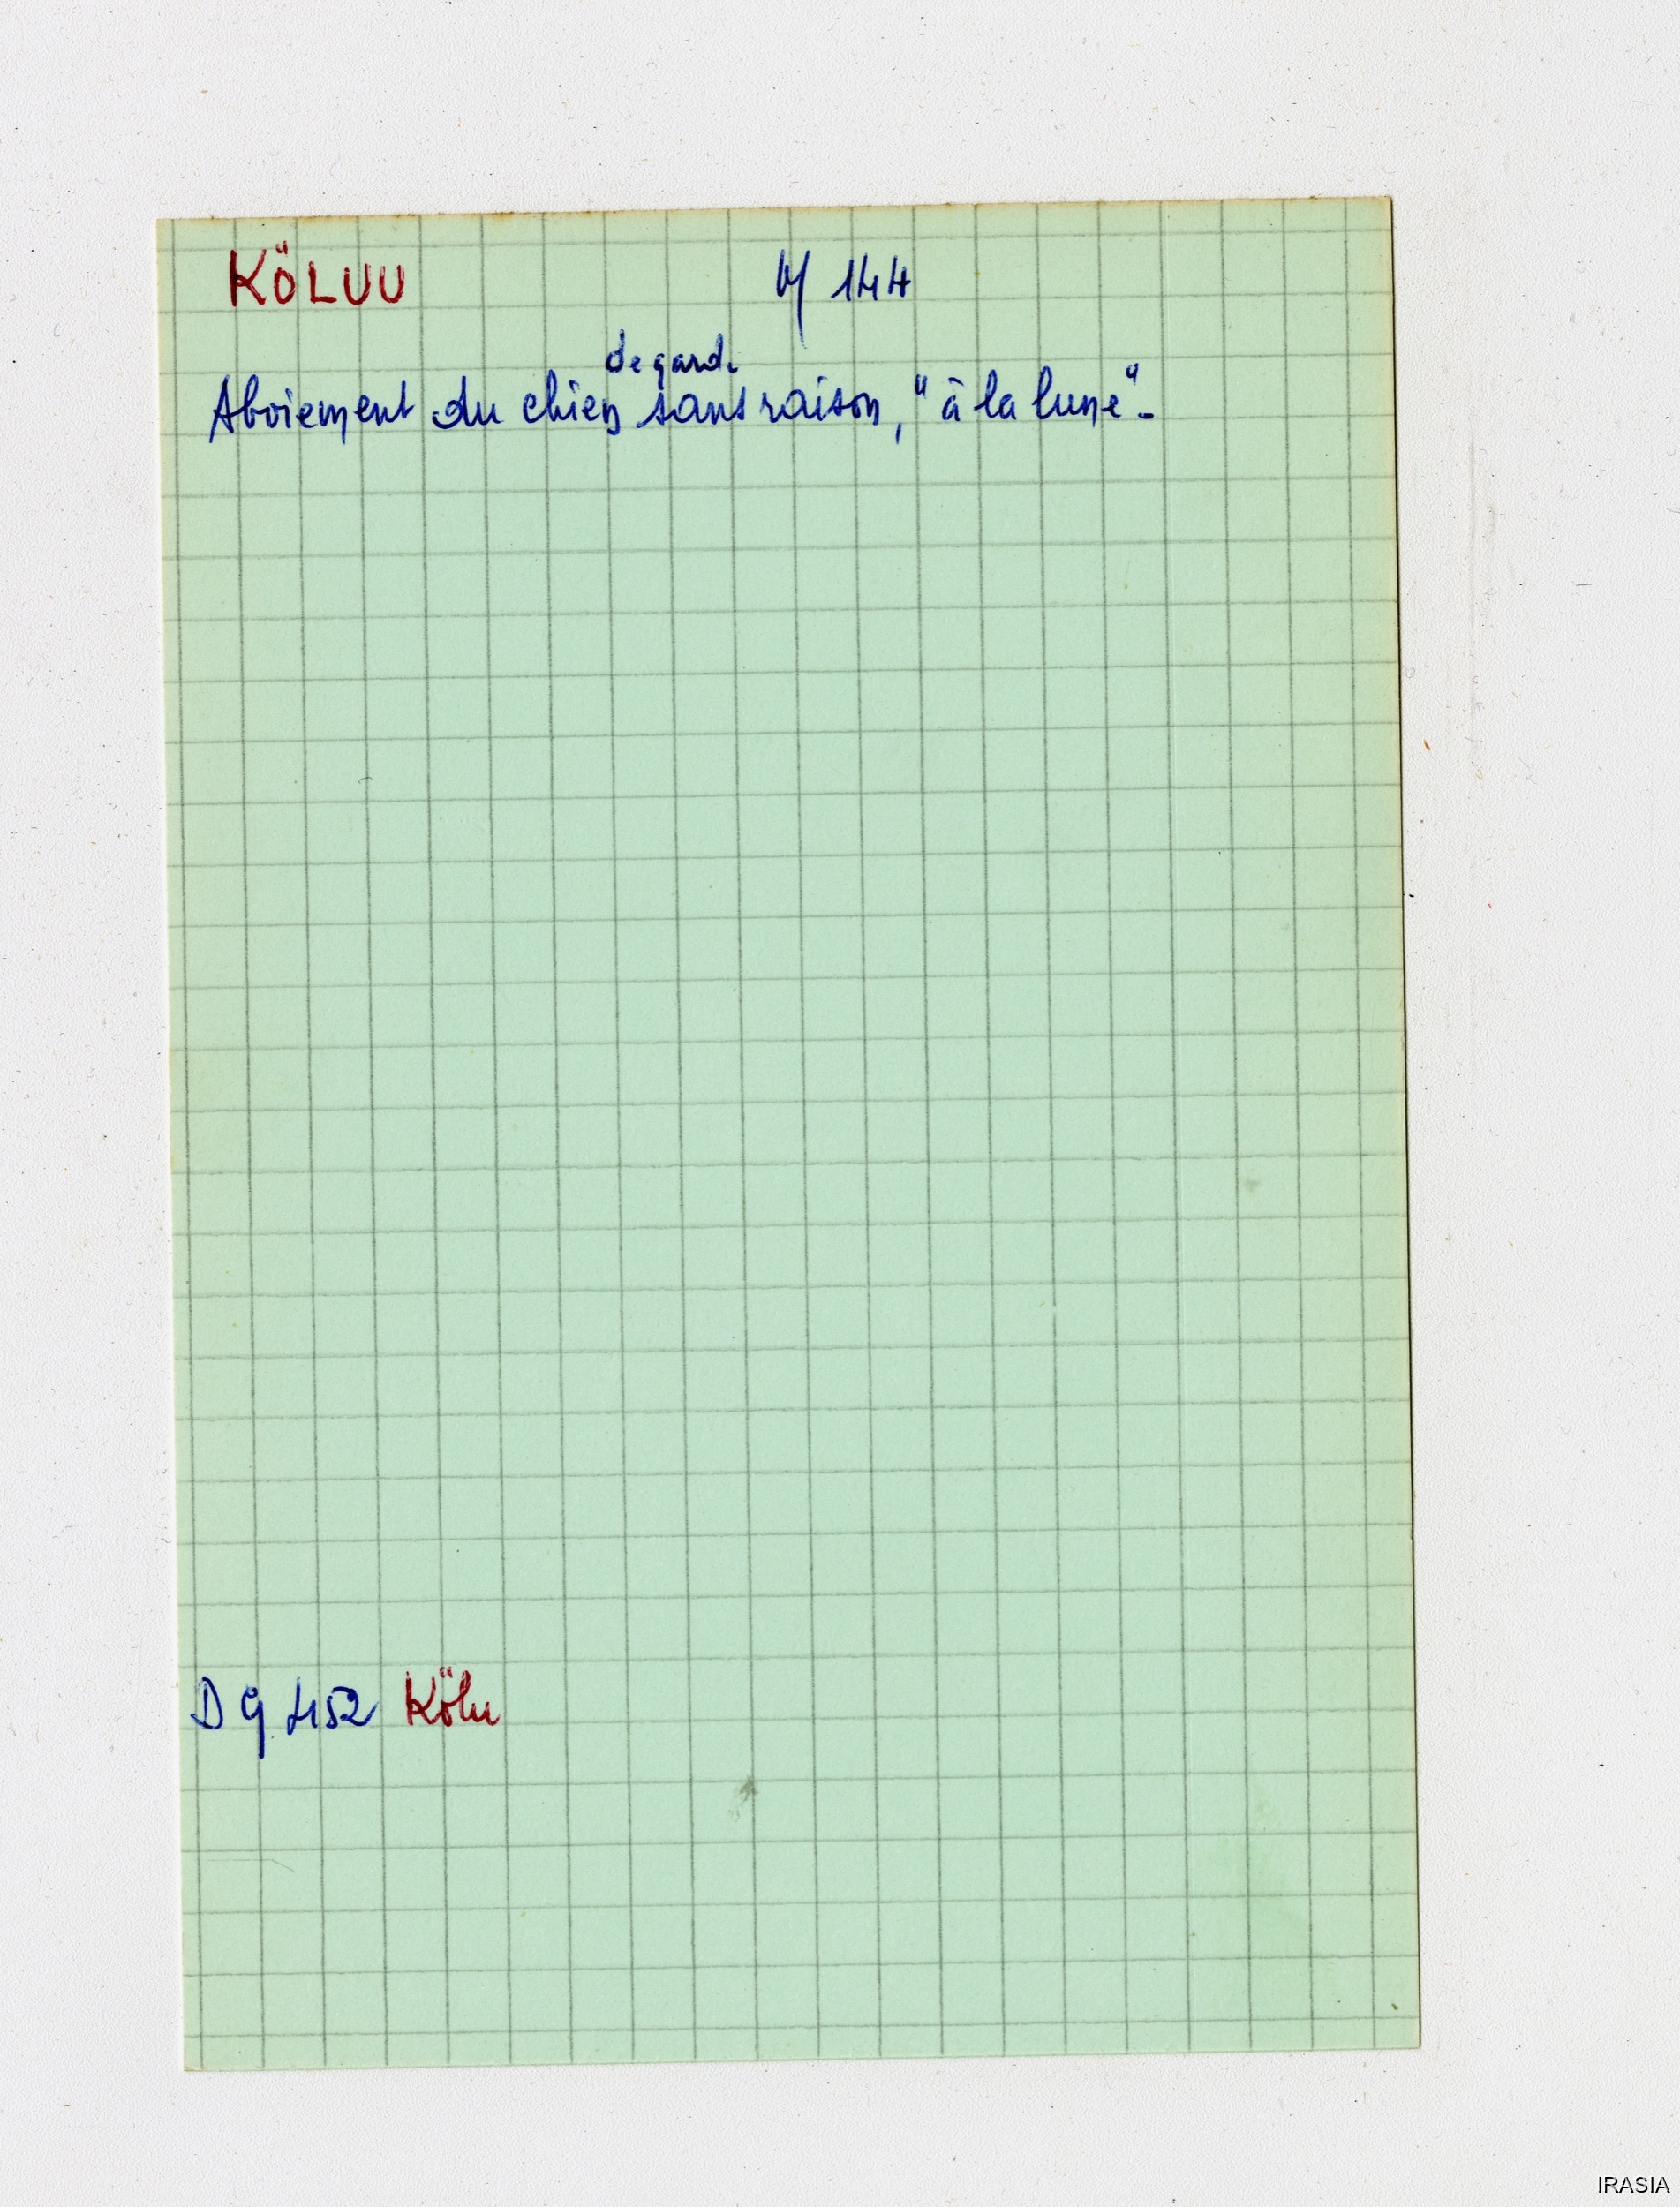 KÖLUU M 144
de garde
Aboiement du chien sans raison, "à la lune".
DG 452 Kölu
IRASIA